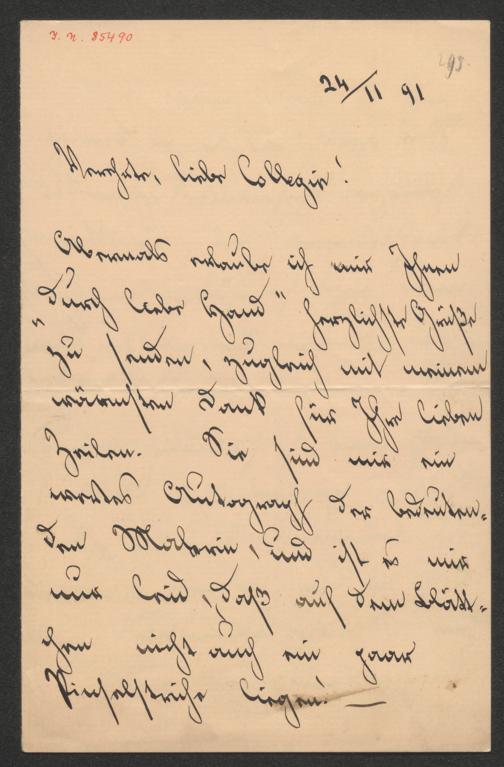 I. N. 85490
24/11 91
Verehrte, liebe Collegin!
Abermals erlaube ich mir Ihnen
"durch liebe Hand" herzlichste Grüße
zu senden, zugleich mit meinem
wärmsten Dank für Ihre lieben
Zeilen. Sie sind mir ein
wertes Autograph der bedeuten-
den Malerin, und ist es mir
nur leid, daß auf dem Blätt-
chen nicht auch ein paar
Pinselstriche liegen! —